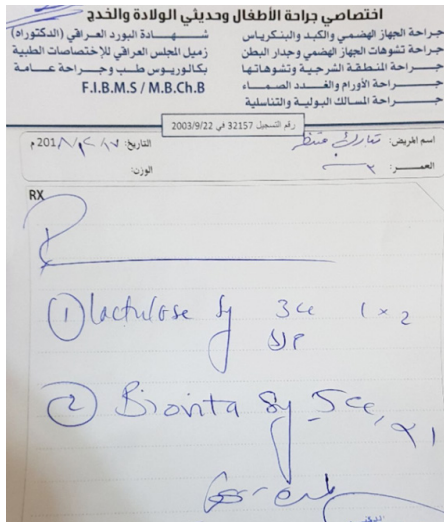 اختصاصي جراحة الأطفال وحديثي الولادة والخدج
جراحة الجهاز الهضمي والكبد والبنكرياس
جراحة تشوهات الجهاز الهضمي وجدار البطن
جراحة المنطقة الشرجية وتشوهاتها
جراحة الأورام والغدد الصماء
جراحة المسالك البولية والتناسلية
شهادة البورد العراقي (الدكتوراه)
زميل المجلس العراقي للإختصاصات الطبية
بكالوريوس طب وجراحة عامة
F.I.B.M.S / M.B.Ch.B
رقم التسجيل 32157 في 2003/9/22
اسم المريض: تبارك
التاريخ: 201 م
العمر: ٣
الوزن:
RX
① lactulose Sy 3cc 1×2
② Biovita Sy 5cc, ×1